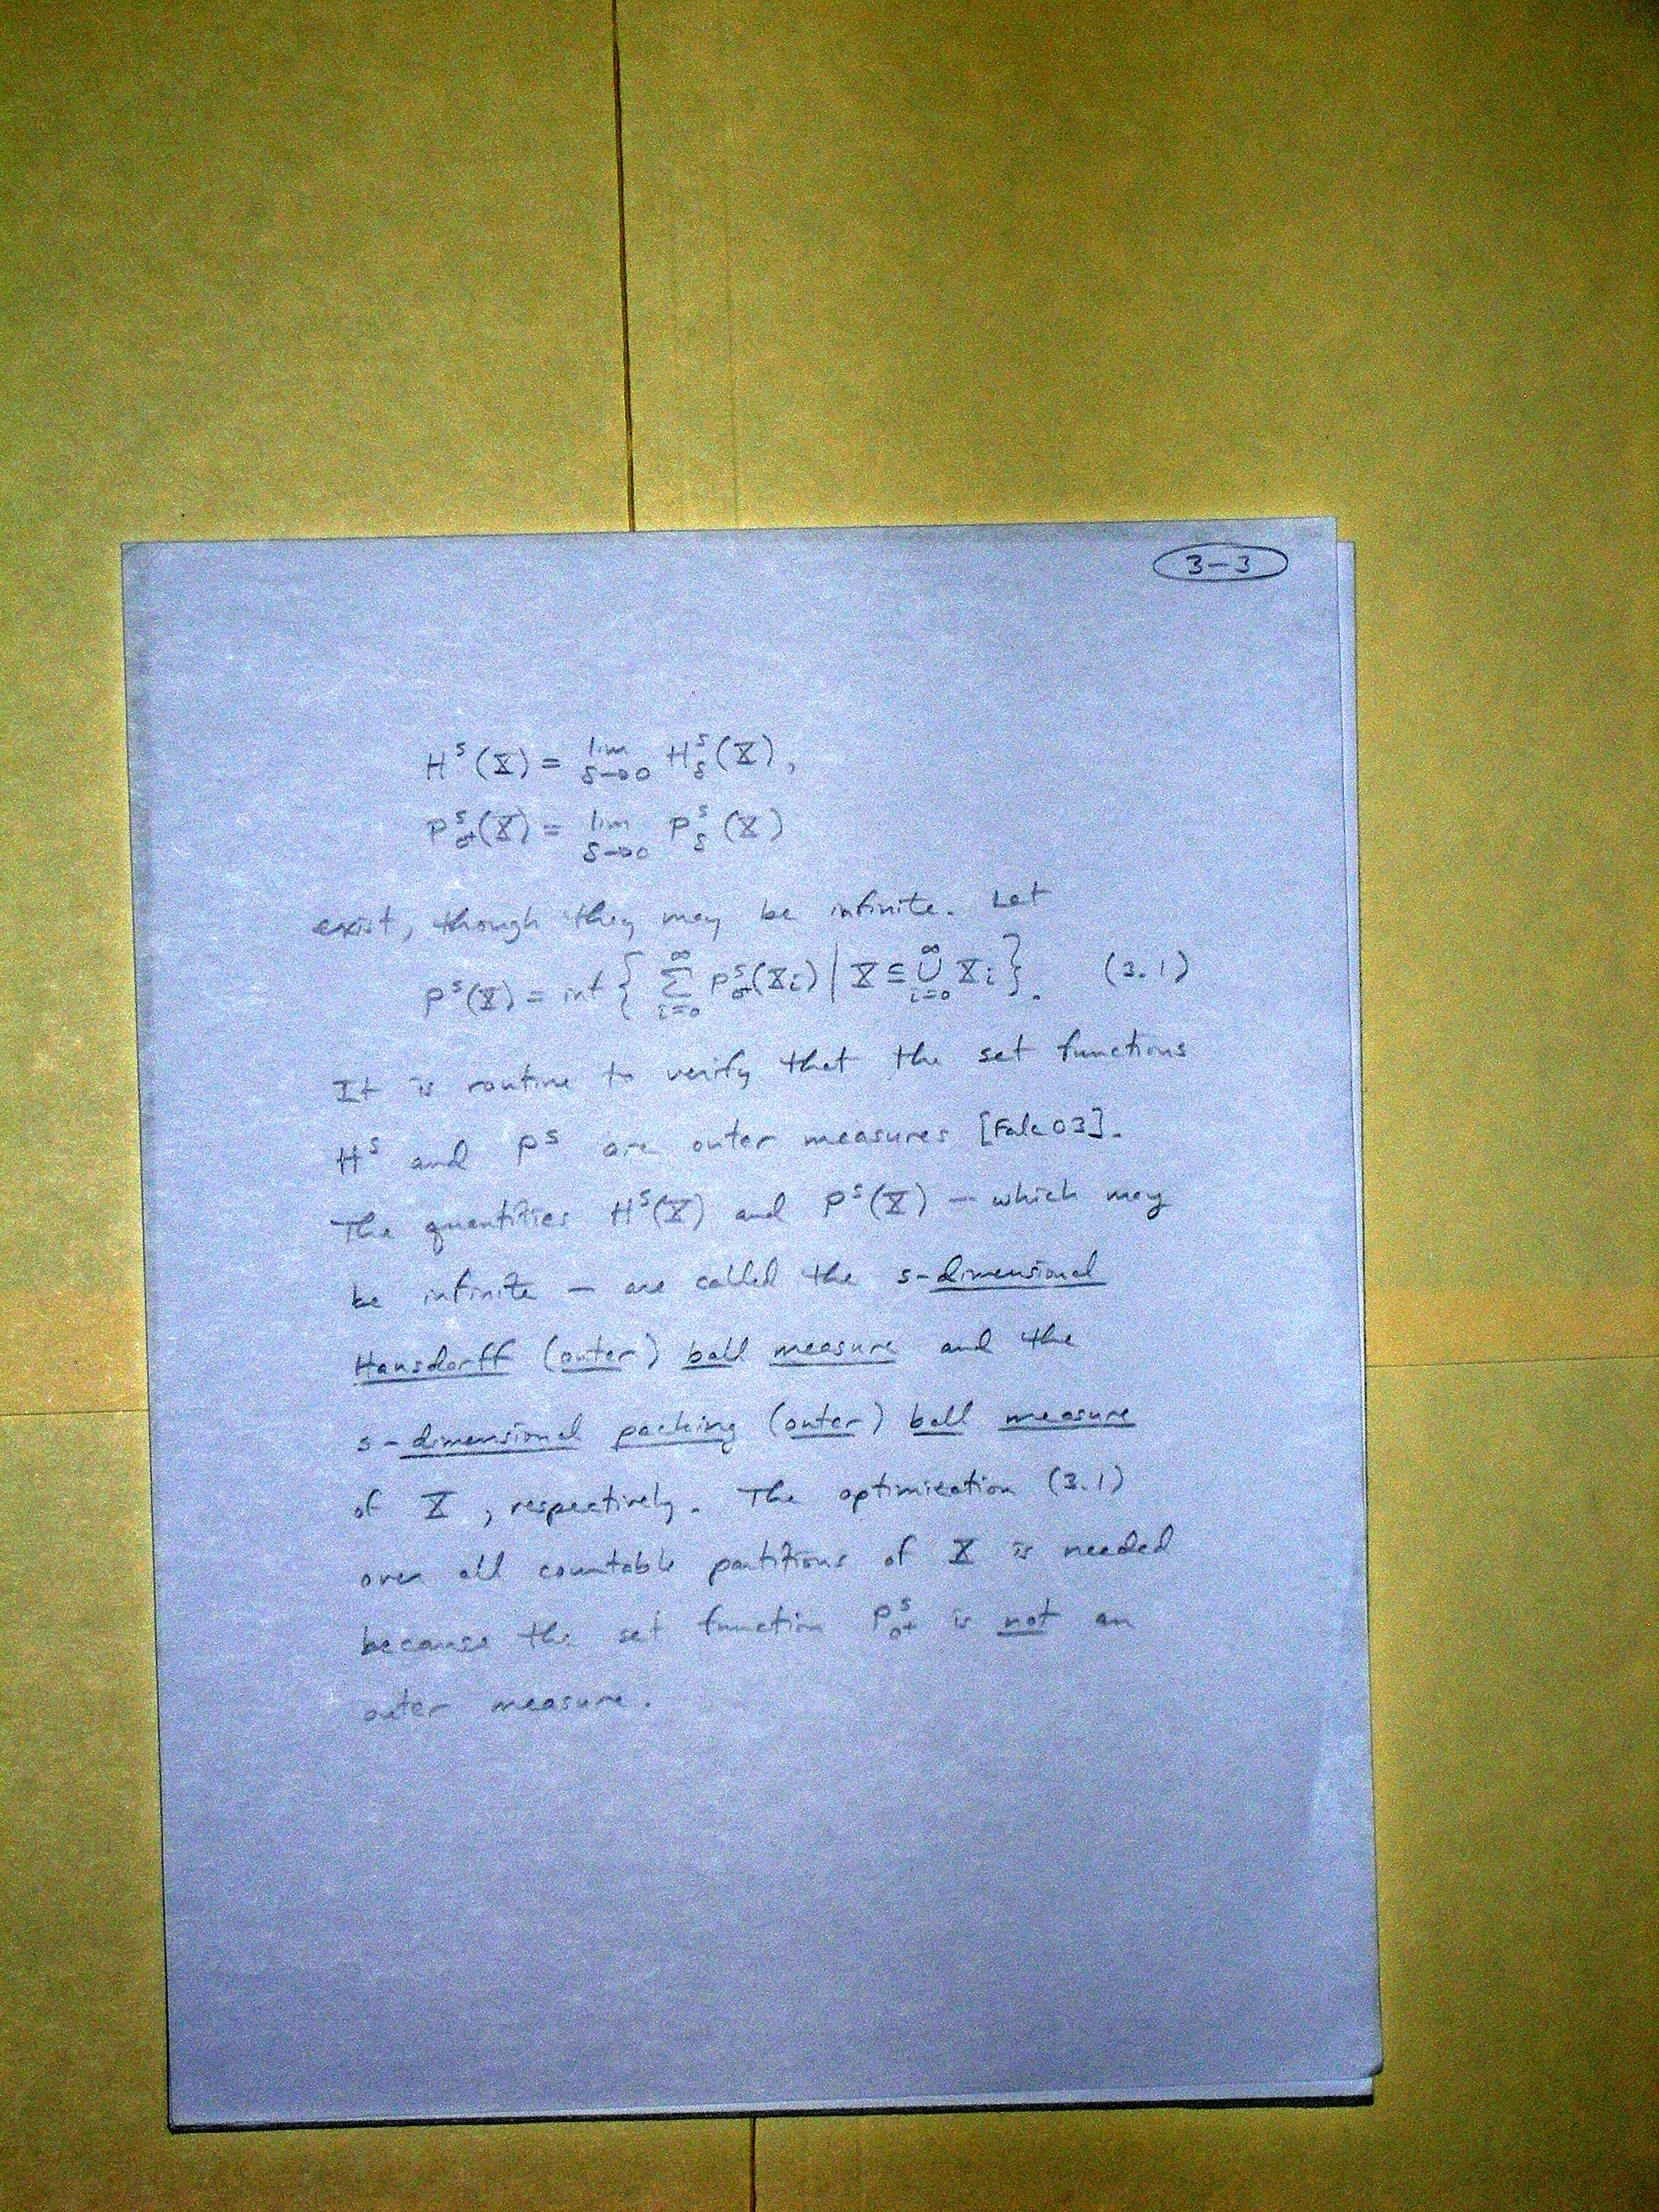 3-3
H^s(X) = lim_{δ→0} H^s_δ(X),
P^s_{0+}(X) = lim_{δ→0} P^s_δ(X)
exist, though they may be infinite. Let
P^s(X) = inf { ∑_{i=0}^∞ P^s_{0+}(X_i) | X ⊆ ⋃_{i=0}^∞ X_i }. (3.1)
It is routine to verify that the set functions
H^s and P^s are outer measures [Falc03].
The quantities H^s(X) and P^s(X) — which may
be infinite — are called the s-dimensional
Hausdorff (outer) ball measure and the
s-dimensional packing (outer) ball measure
of X, respectively. The optimization (3.1)
over all countable partitions of X is needed
because the set function P^s_{0+} is not an
outer measure.